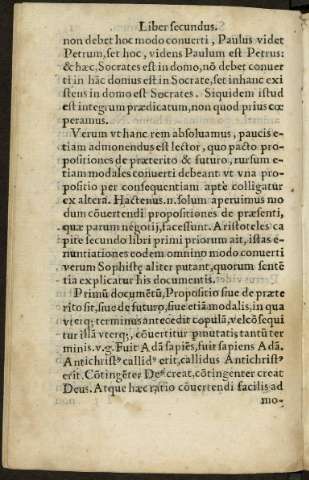 Liber secundus.
non debet hoc modo conuerti, Paulus videt
Petrum, set hoc, videns Paulum est Petrus:
& hæc, Socrates est in domo, nō debet conuer
ti in hāc domus est in Socrate, set in hanc exi
stens in domo est Socrates. Siquidem istud
est integrum prædicatum, non quod prius cœ
peramus.
Verum vt hanc rem absoluamus, paucis e-
tiam admonendus est lector, quo pacto pro-
positiones de præterito & futuro, rursum e-
tiam modales conuerti debeant vt vna pro-
positio per consequentiam aptè colligatur
ex alterā. Hactenus.n. solum aperuimus mo
dum cōuertendi propositiones de præsenti,
quæ parum negotij, facessunt. Aristoteles ca
pite secundo libri primi priorum ait, istas e-
nuntiationes eodem omnino modo conuerti
verum Sophistę aliter putant, quorum sentē
tia explicatur his documentis.
Primū documētū, Propositio siue de præte
rito sit, siue de futuro, siue etiā modalis, in qua
vterq; terminus antecedit copulā, vel cōsequi
tur illā vterq;, cōuertitur p̄mutatis tantū ter
minis. v.g. Fuit Adā sapiēs, fuit sapiens Adā.
Antichristꝰ callidꝰ erit, callidus Antichristꝰ
erit. Cōtingēter Deꝰ creat, cōtingenter creat
Deus. Atque hæc ratio cōuertendi facilis ad
mo-